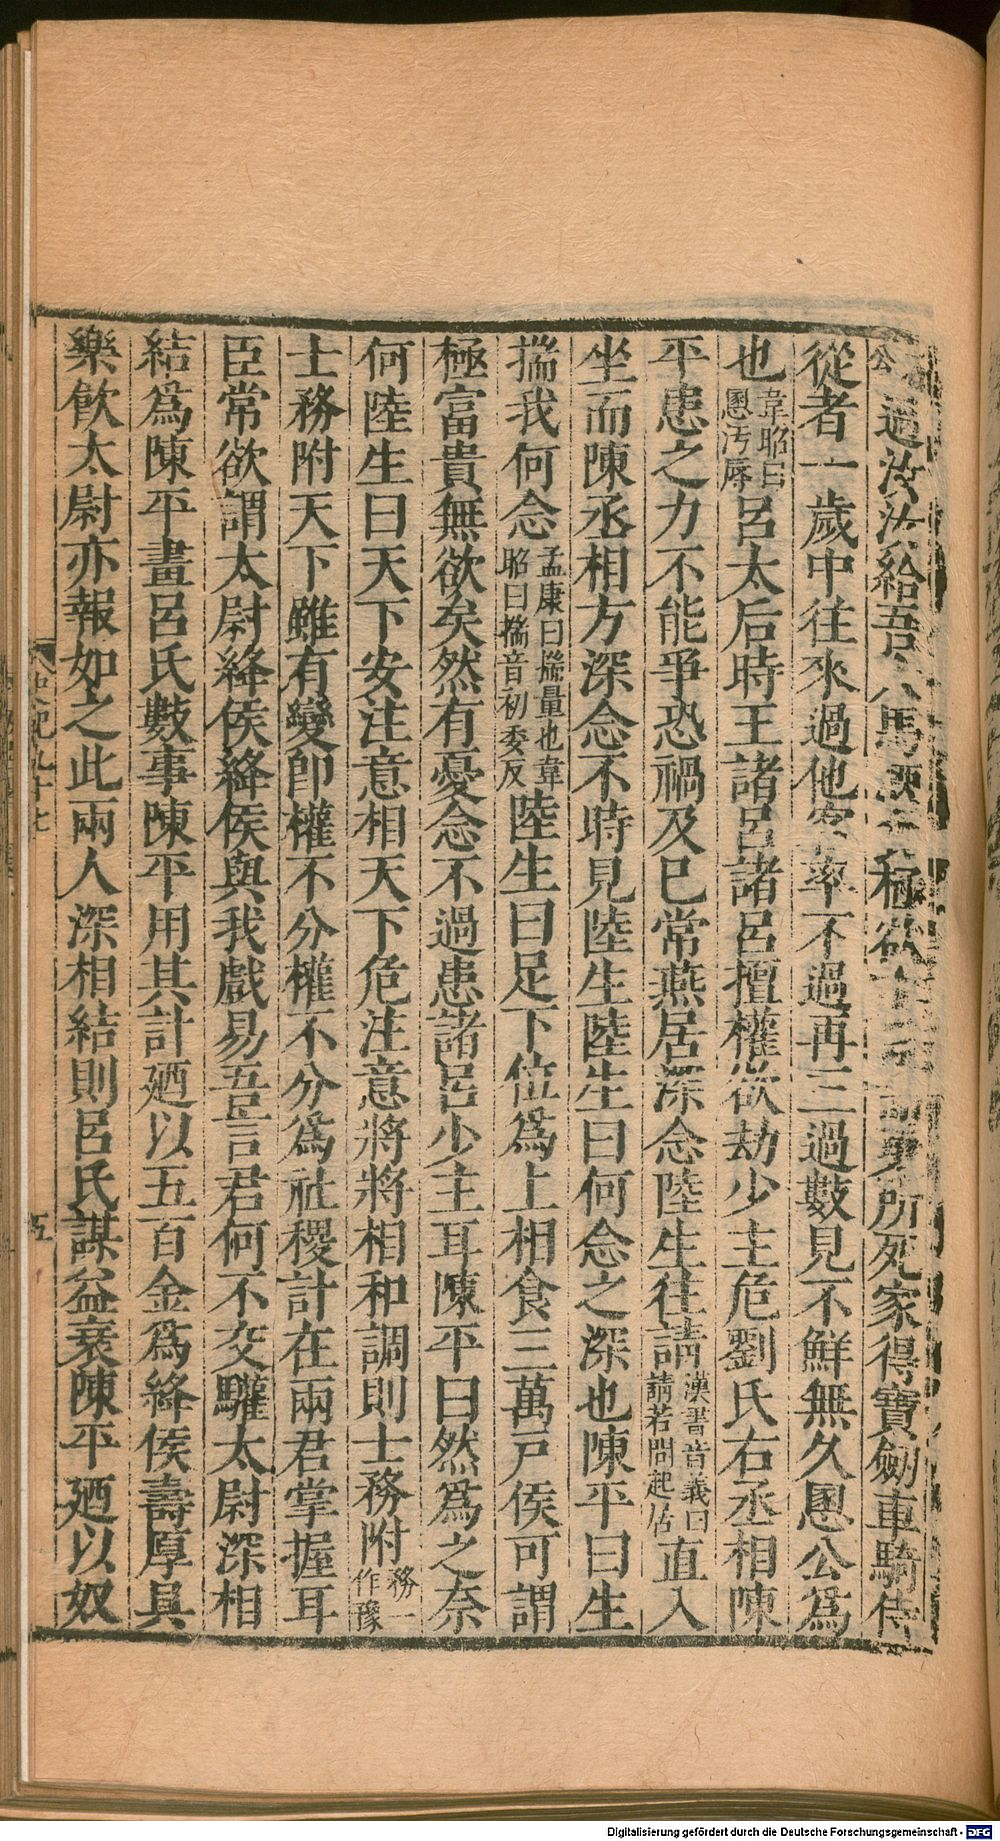 公 過汝汝給吾人馬酒 極欲十 所死家得寶劍車騎侍
從者一歲中往來過他客率不過再三過數見不鮮無久慁公爲
也韋昭曰慁汚辱呂太后時王諸呂諸呂擅權欲劫少主危劉氏右丞相陳
平患之力不能爭恐禍及已常燕居深念陸生往請漢書音義曰請若問起居直入
坐而陳丞相方深念不時見陸生陸生曰何念之深也陳平曰生
揣我何念孟康曰揣量也韋昭曰揣音初委反陸生曰足下位爲上相食三萬戶侯可謂
極富貴無欲矣然有憂念不過患諸呂少主耳陳平曰然爲之奈
何陸生曰天下安注意相天下危注意將將相和調則士務附務一作豫
士務附天下雖有變卽權不分權不分爲社稷計在兩君掌握耳
臣常欲謂太尉絳侯絳侯與我戲易吾言君何不交驩太尉深相
結爲陳平畫呂氏數事陳平用其計廼以五百金爲絳侯壽厚具
樂飮太尉亦報如之此兩人深相結則呂氏謀益衰陳平廼以奴
史記九十七
五
Digitalisierung gefördert durch die Deutsche Forschungsgemeinschaft - DFG